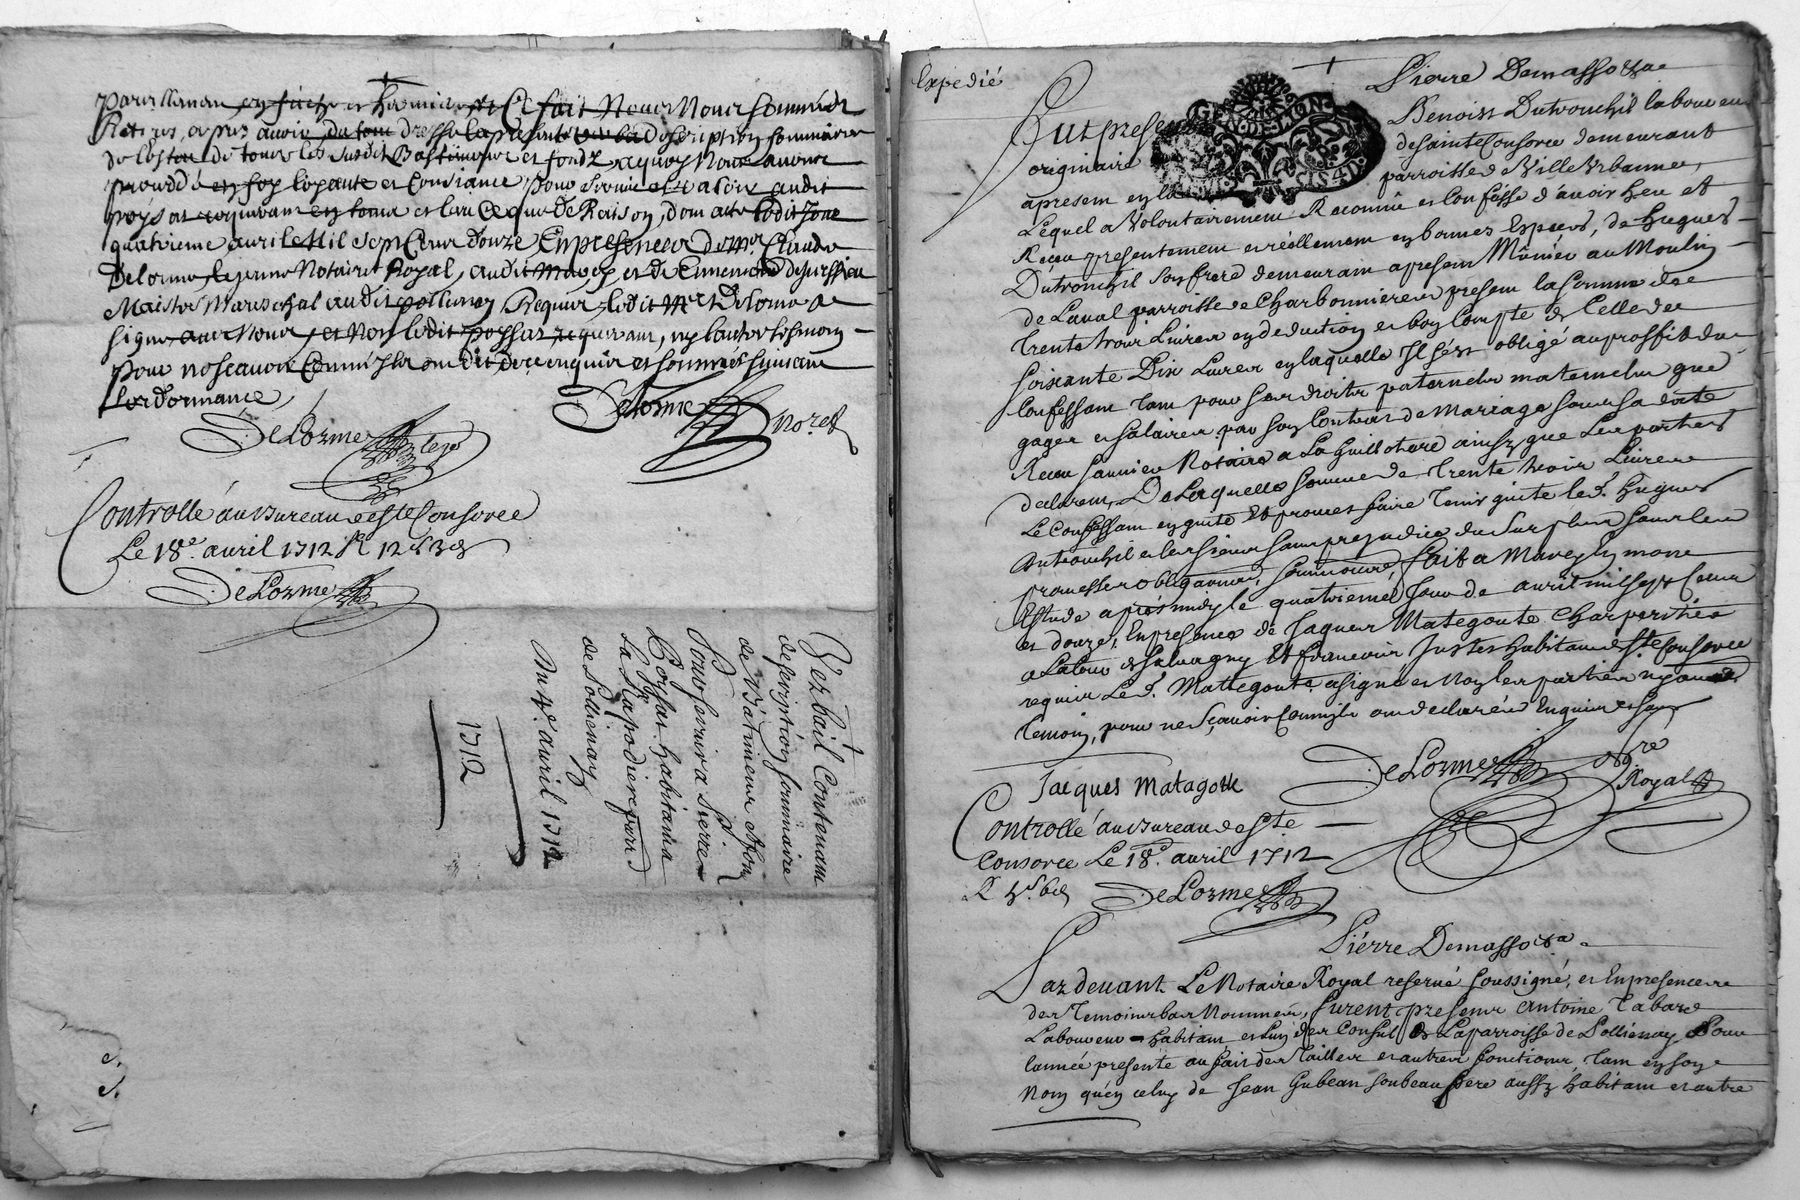 et ce fait Nous Nous sommes
Retirés apres avoir du tout dressé la presente description sommaire
de l'estat de tous lesdits Bastiments et fonds, a quoy Nous avons
procedé en foy loyauté et Consiance pour servir et valoir audit
poysat requerant en tems et lieu Ce que de Raison, dont acte ledit Jour
quatrieme avril Mil sept Cent douze En presence de mr. Claude
Delorme le jeune Notaire Royal, audit et de Ennemond
Maistre Mareschal audit pollienay Requis, ledit Mre Delorme a
signé avec Nous, et Non ledit poyssat requerant, ny l'autre tesmoin
pour ne scavoir Comm'ils ont dit de ce enquis et sommés suivant
L'ordonnance,
DeLorme
DeLorme
No.re R
Controllé au Bureau de Ste Consorce
Le 18e. avril 1712 R 12 s 3 d
DeLorme
Verbail Contenant
description sommaire
de Batiments & fonds
Pour servir a Pierre
Poysat habitant
La parroisse
de Pollienay
Du 4e. avril 1712
1712
Expedié
GEN. DE LYON
Pierre Demasso &a
Fut present
Benoist Dutronchil laboureur
originaire
de Sainte Consorce demeurant
apresent en la
parroisse de Ville Urbanne,
Lequel a Volontairement Reconnu et Confessé d'avoir heu et
Receu presentement et reéllement en bonnes Especes, de hugues
Dutronchil son frere demeurant apresent Mûnier au Moulin
de Laval parroisse de Charbonnieres present la somme de
trente trois Livres en deduction et bon Compte de Celle de
soixante Dix Livres en laquelle Il s'est obligé au proffit du
Confessant tant pour ses droits paternels maternels que
gages et salaires par son Contrat de Mariage sous sa datte
Receu Notaire a La Guillotiere ainsy que Les parties
declarent, De Laquelle somme de trente trois Livres
Le Confessant en quite Et promet faire tenir quite led. hugues
Dutronchil et les siens sans prejudice du surplus sous les
promesses obligations, fait a Marcy En mon
Estude aprés midy le quatrieme Jour de avril mil sept Cent
et douze, En presence de Jaques Mategoute Charpentier
a Latour de Salvagny Et francois Justes habitant de Ste Consorce
requis Led. Mattegoute a signé et Non les parties ny autre
temoin, pour ne scavoir Comm'ils ont declaré de Enquis et
Jacques Matagote
DeLorme
No.re Royal
Controllé au Bureau de Ste
Consorce Le 18e. avril 1712
R 5 s. 6 d
DeLorme
Pierre Demasso &a
Pardevant Le Notaire Royal reservé soussigné, et En presence
des Temoins bas Nommés, furent presens Antoine Tabard
Laboureur habitant et l'un des Consuls de La parroisse de Pollienay Pour
l'année presente au fait des Tailles et autres fonctions, tant en son
Nom qu'en celuy de Jean Gubean son beau frere aussy habitant et autre